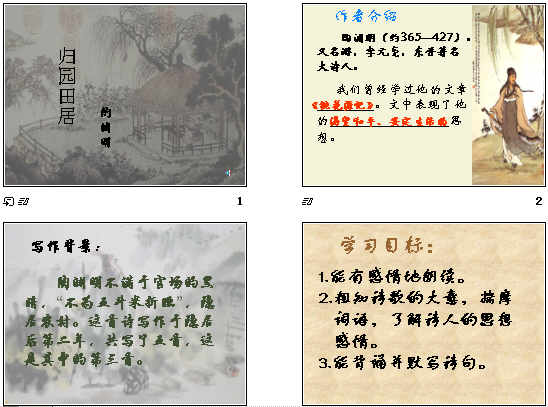 归园田居
陶渊明
1
作者介绍
陶渊明（约365—427），
又名潜，字元亮，东晋著名
大诗人。
我们曾经学过他的文章
《桃花源记》。文中表现了他
的渴望和平、安定生活的思
想。
2
写作背景：
陶渊明不满于官场的黑
暗，“不为五斗米折腰”，隐
居农村。这首诗写作于隐居
后第二年，共写了五首，这
是其中的第三首。
学习目标：
1.能有感情地朗读。
2.粗知诗歌的大意，揣摩
词语，了解诗人的思想
感情。
3.能背诵并默写诗句。